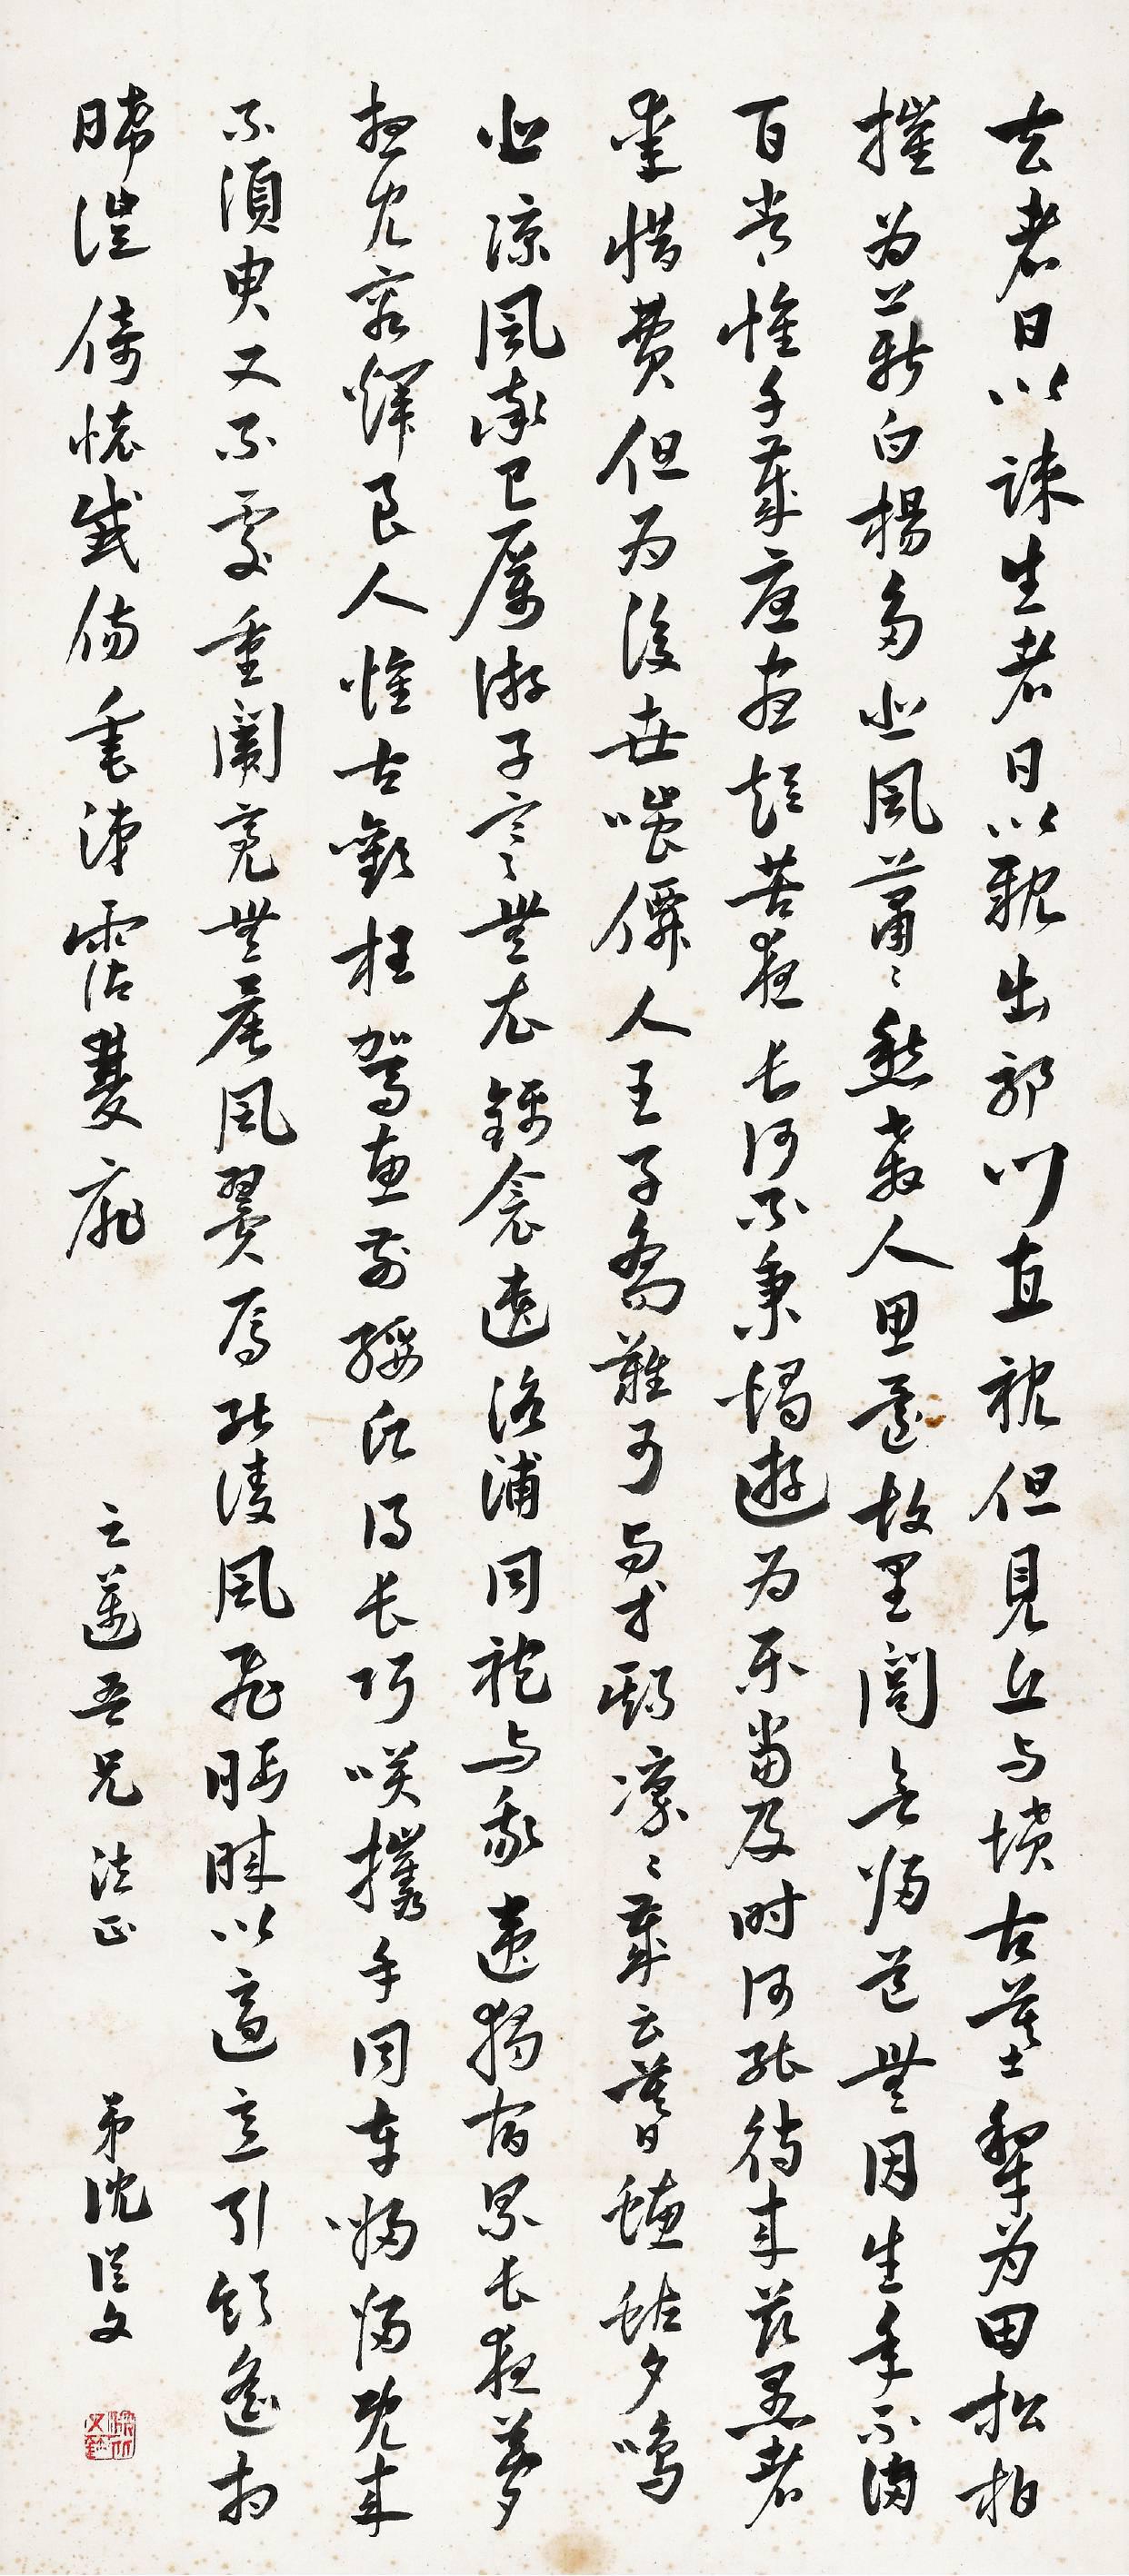 去者日以疎生者日以親出郭門直視但見丘与墳古墓犁为田松柏
摧为薪白楊多悲風蕭〻愁殺人思還故里閭無歸道無因生年不滿
百常懷千歲憂晝短苦夜長何不秉燭遊为樂當及时何能待來茲愚者
愛惜費但为後世嗤僊人王子喬難可与等期凛〻歲云暮日螻蛄夕鳴
悲涼風率已厲游子寒無衣錦衾遺洛浦同袍与我違獨宿累長夜夢
想見容輝良人惟古歡枉駕惠前綏願得長巧笑攜手同車歸歸既來
不須臾又不處重闈亮無晨風翼焉能凌風飛眄睞以適意引領遙相
睎徙倚懷感傷垂涕霑雙扉
云蓮吾兄法正
弟沈從文